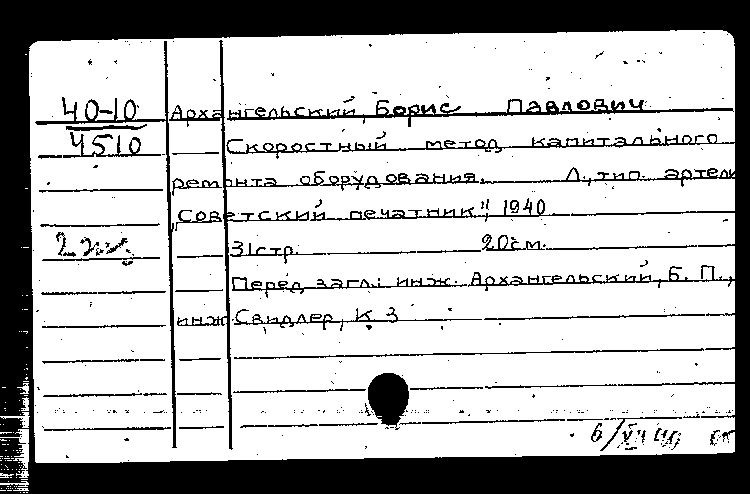 40-10 Архангельский, Борис Павлович
4510 Скоростный метод капитального
ремонта оборудования. Л., тип. артели
"Советский печатник", 1940
2 экз. 31стр. 20см.
Перед загл.: инж. Архангельский, Б. П.,
инж Свидлер, К. З
6/XII 40